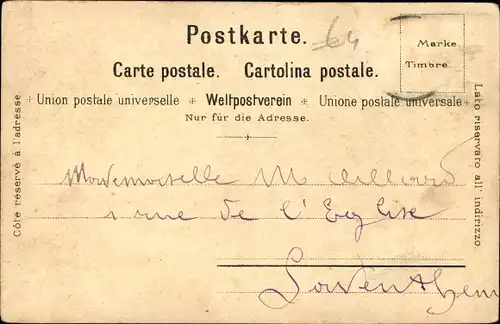 Postkarte.
64
Marke
Timbre
Carte postale. Cartolina postale.
Union postale universelle Weltpostverein Unione postale universale
Nur für die Adresse.
Côté réservé à l'adresse.
Lato riservato all' indirizzo.
Mademoiselle M
1 rue de l'Eglise
Saventhem